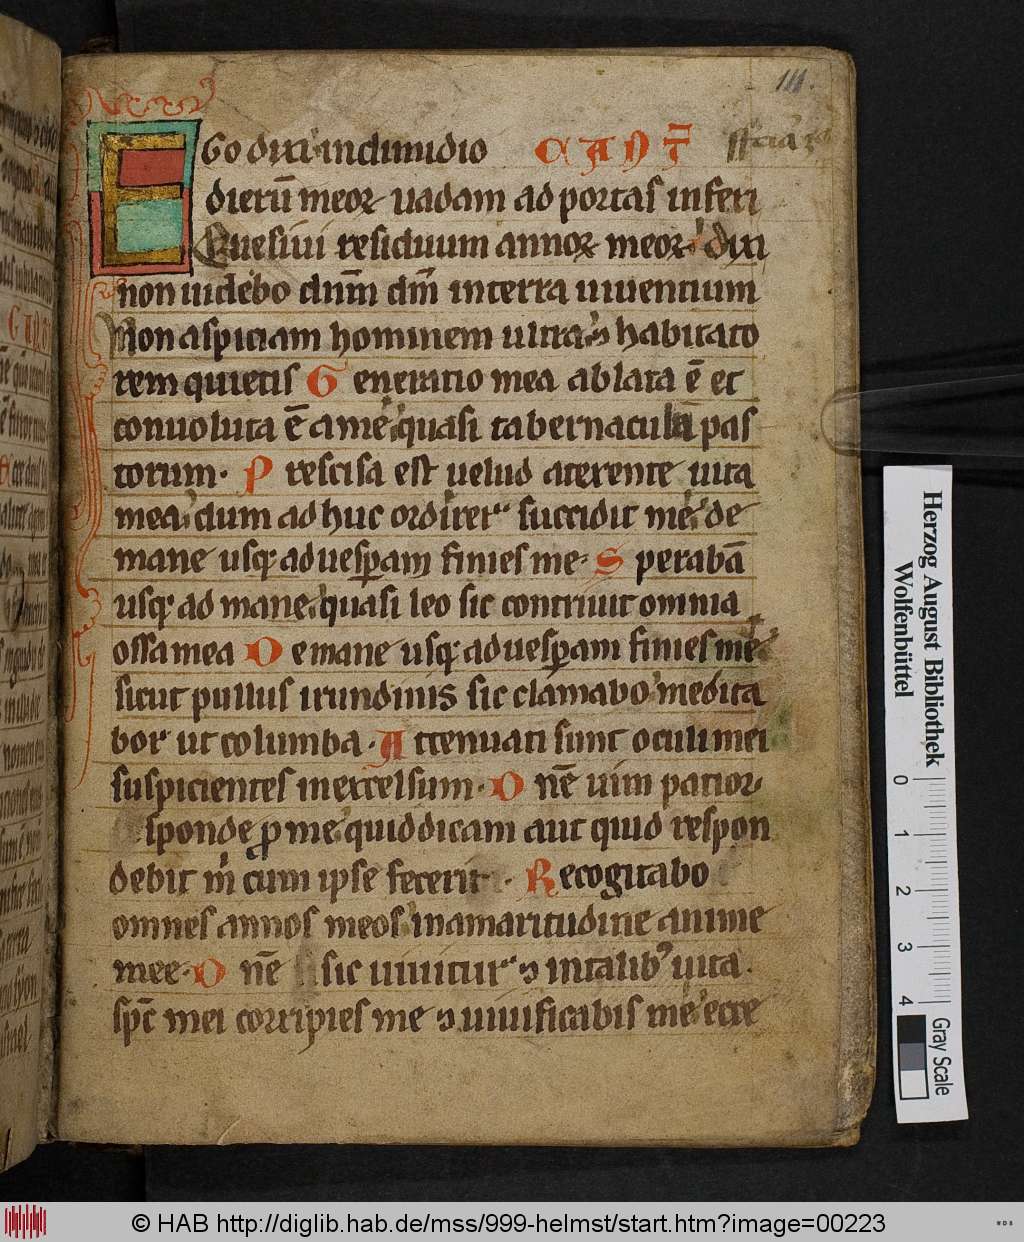 111.
EGo dixi in dimidio CANT
dierū meoꝝ uadam ad portas inferi
Quesiui residuum annoꝝ meoꝝ dixi
non uidebo dn̄m dm̄ in terra uiuentium
Non aspiciam hominem ultra ⁊ habitato
rem quietis Generatio mea ablata ē et
conuoluta ē a me quasi tabernacula pas
torum. Prescisa est uelud a texente uita
mea dum ad huc ordirer succidit me de
mane usqꝫ ad uesꝑam finies me. Sperabā
usqꝫ ad mane quasi leo sic contriuit omnia
ossa mea De mane usqꝫ ad uesꝑam finies me
sicut pullus irundinis sic clamabo medita
bor ut columba. Attenuati sunt oculi mei
suspicientes in excelsum. Dn̄e uim patior
sponde ꝓ me quid dicam aut quid respon
debit m̄ cum ipse fecerit. Recogitabo
omnes annos meos in amaritudine anime
mee. Dn̄e sic uiuitur ⁊ in talibꝰ uita
sp̄c mei corripies me ⁊ uiuificabis me ecce
Herzog August Bibliothek
Wolfenbüttel
0 1 2 3 4
Gray Scale
© HAB http://diglib.hab.de/mss/999-helmst/start.htm?image=00223